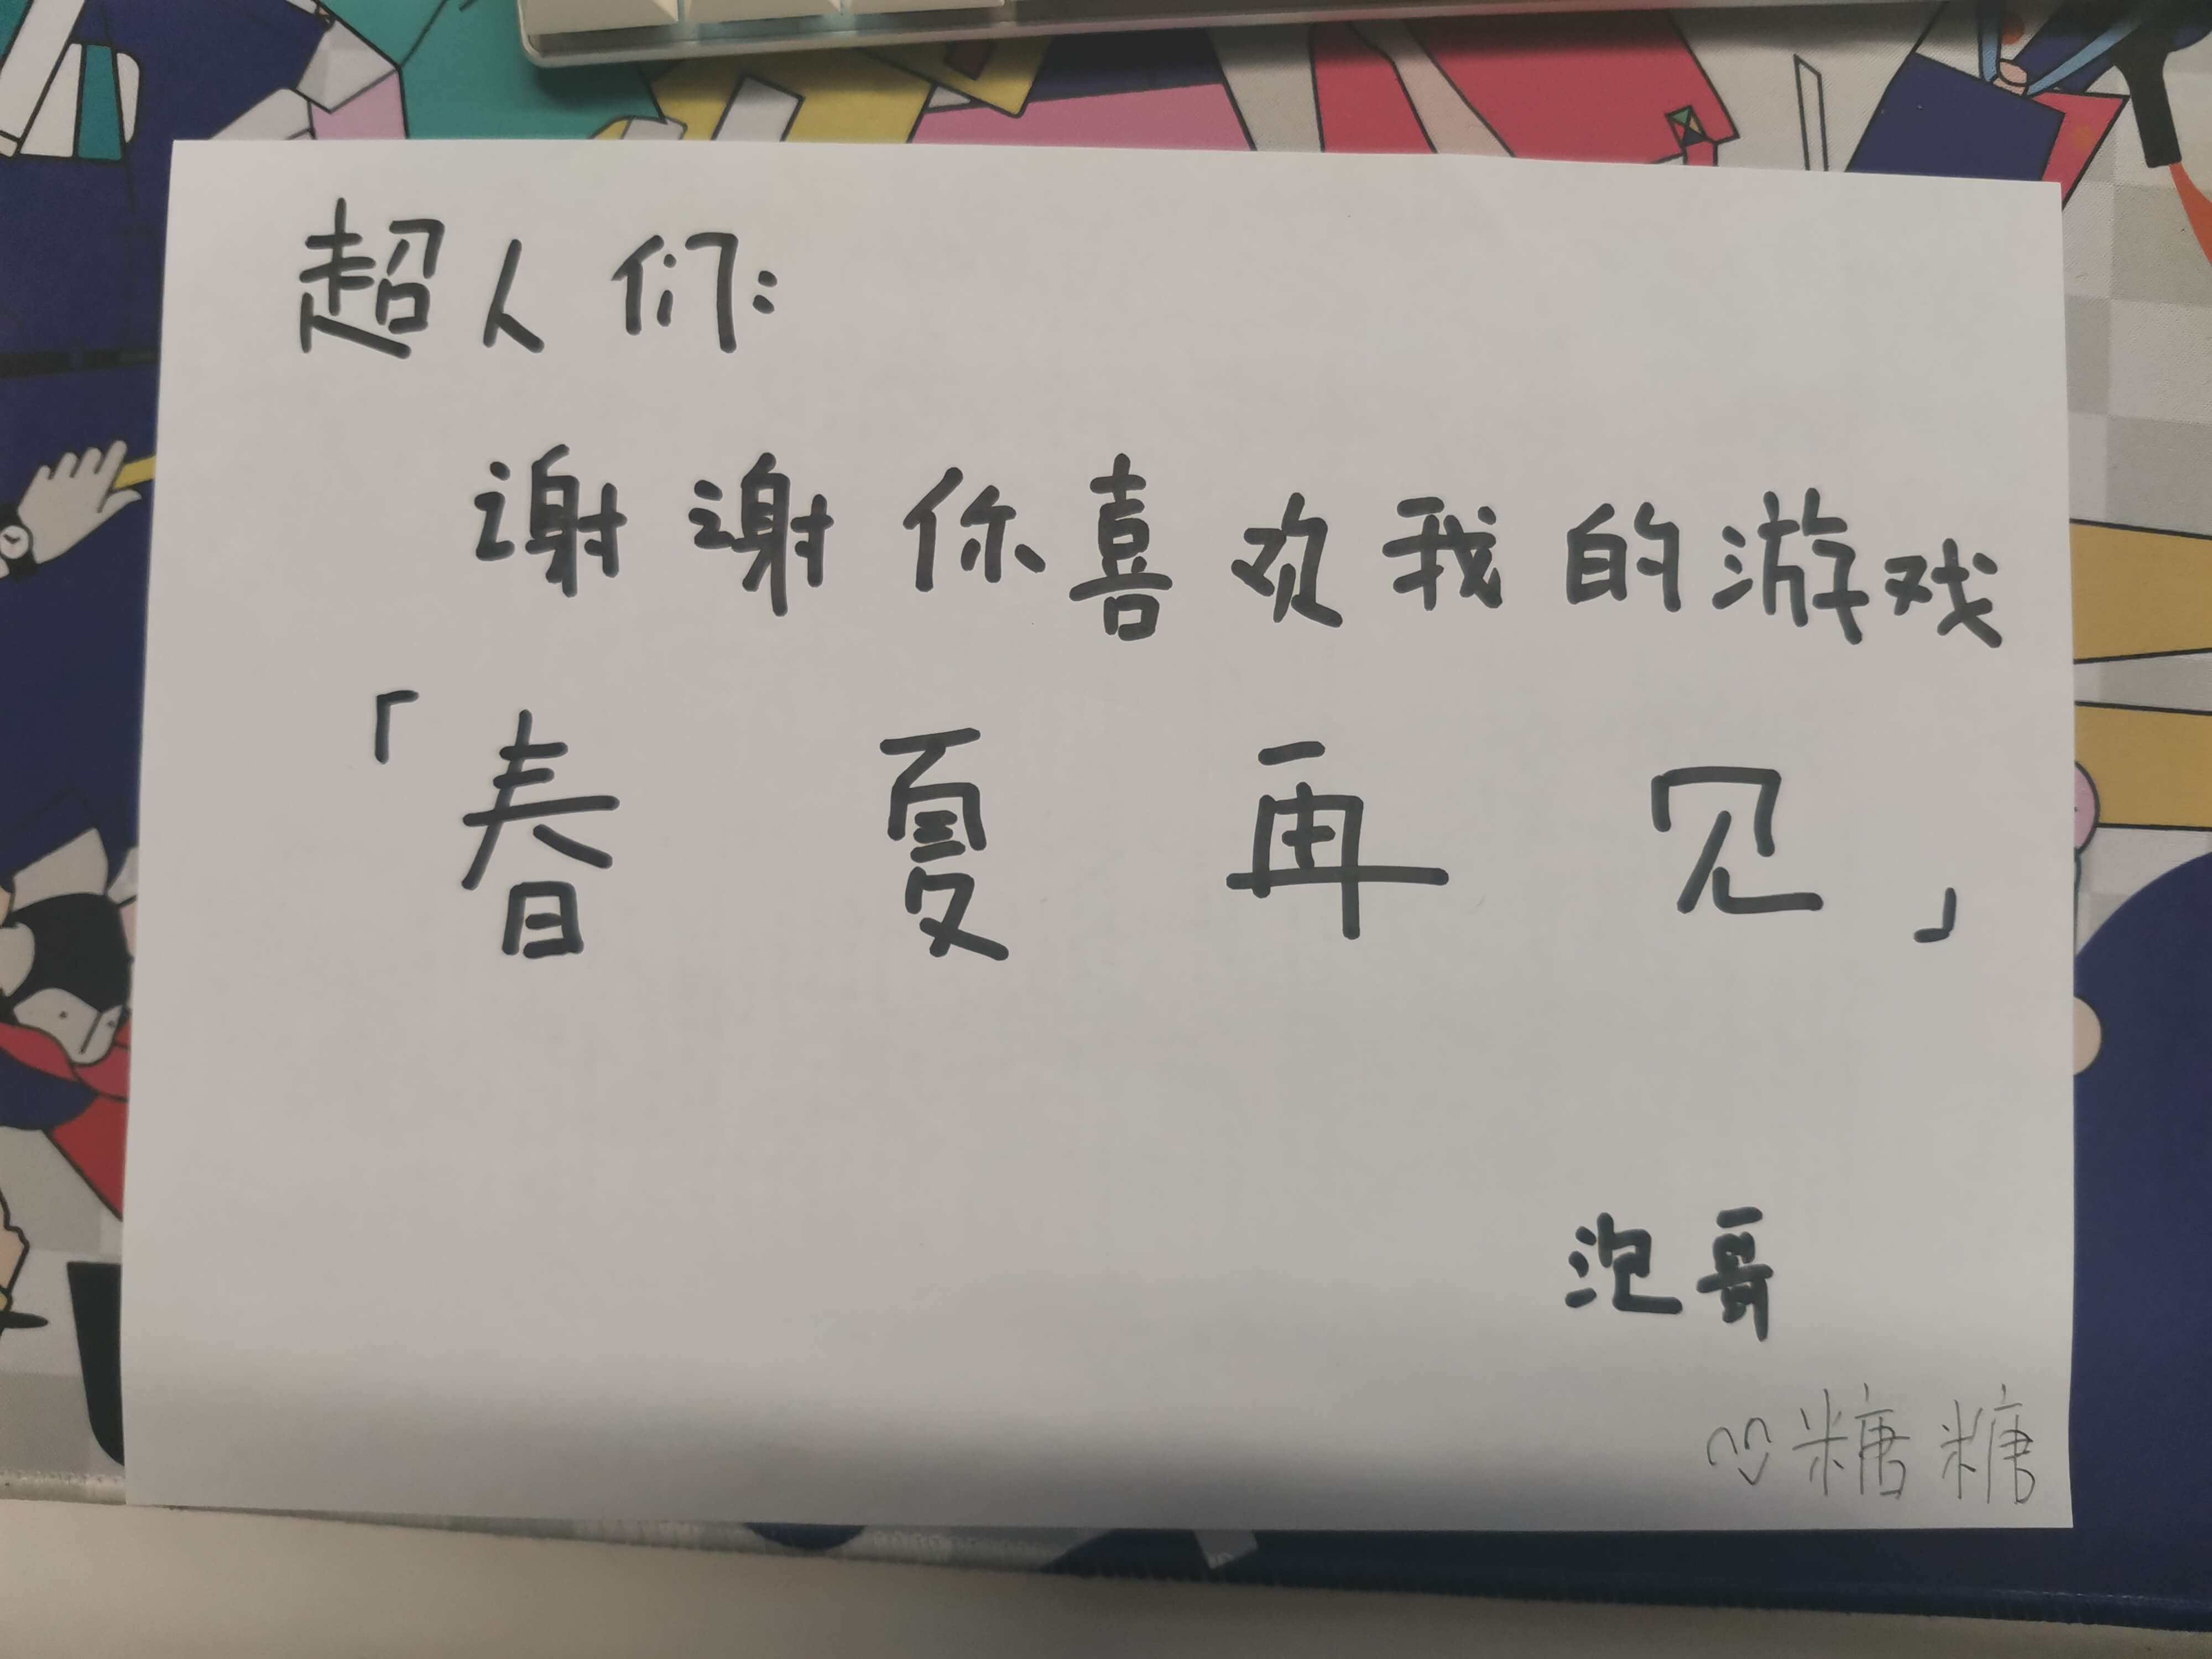 超人们:
谢谢你喜欢我的游戏
「春夏再见」
泡哥
糖糖